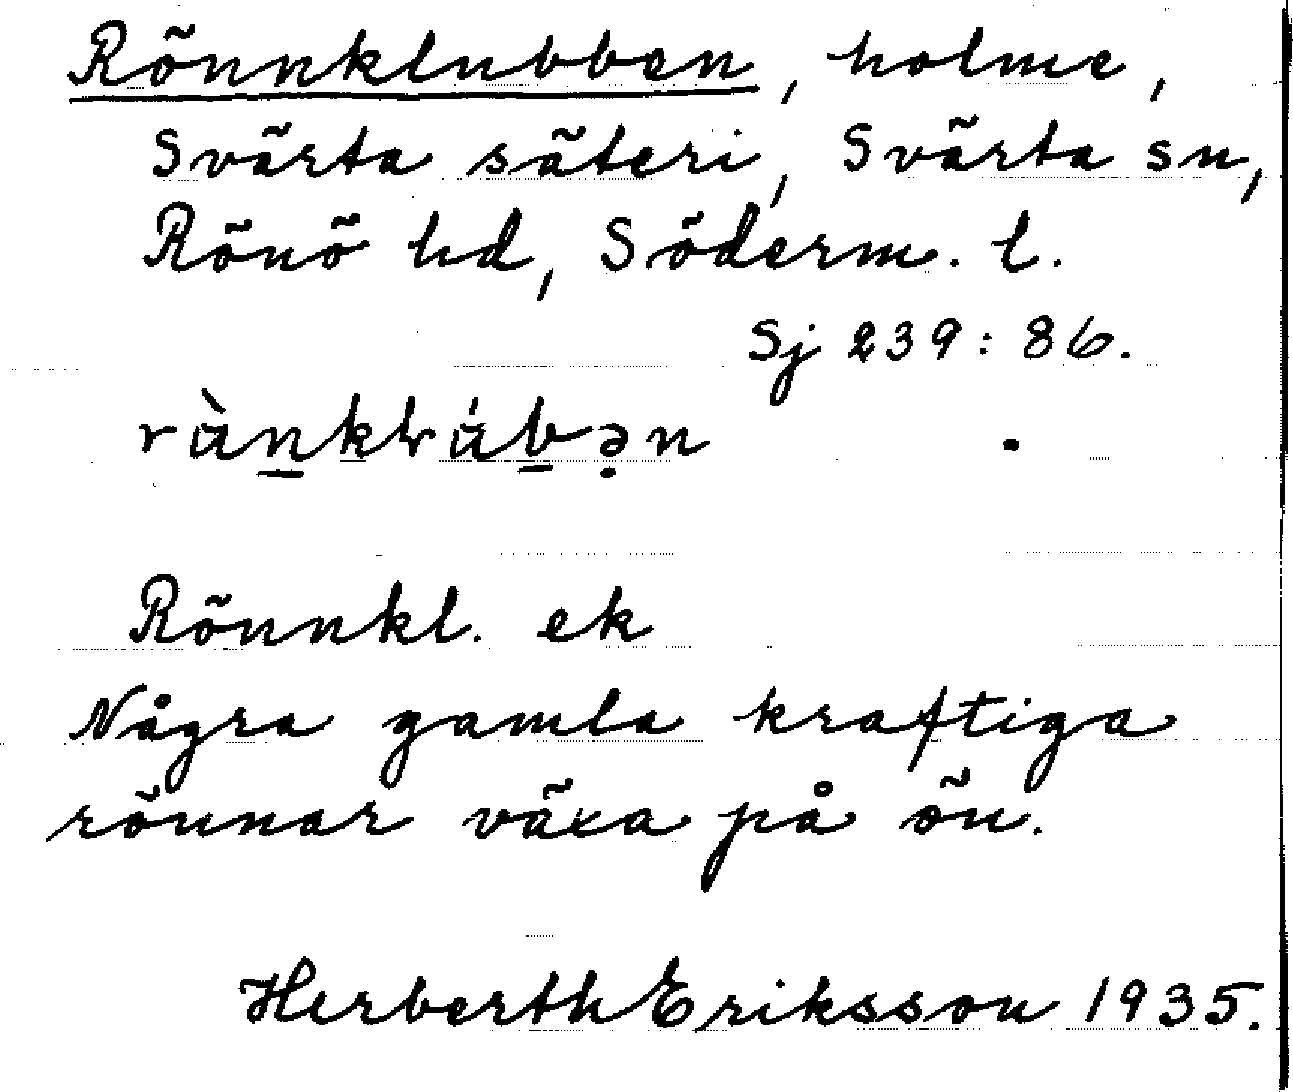 Rönnklubben, holme,
Svärta säteri, Svärta sn,
Rönö hd, Söderm. l.
Sj 239:86.
Rönnkl. ek
Några gamla kraftiga
rönnar växa på ön.
Herberth Eriksson 1935.